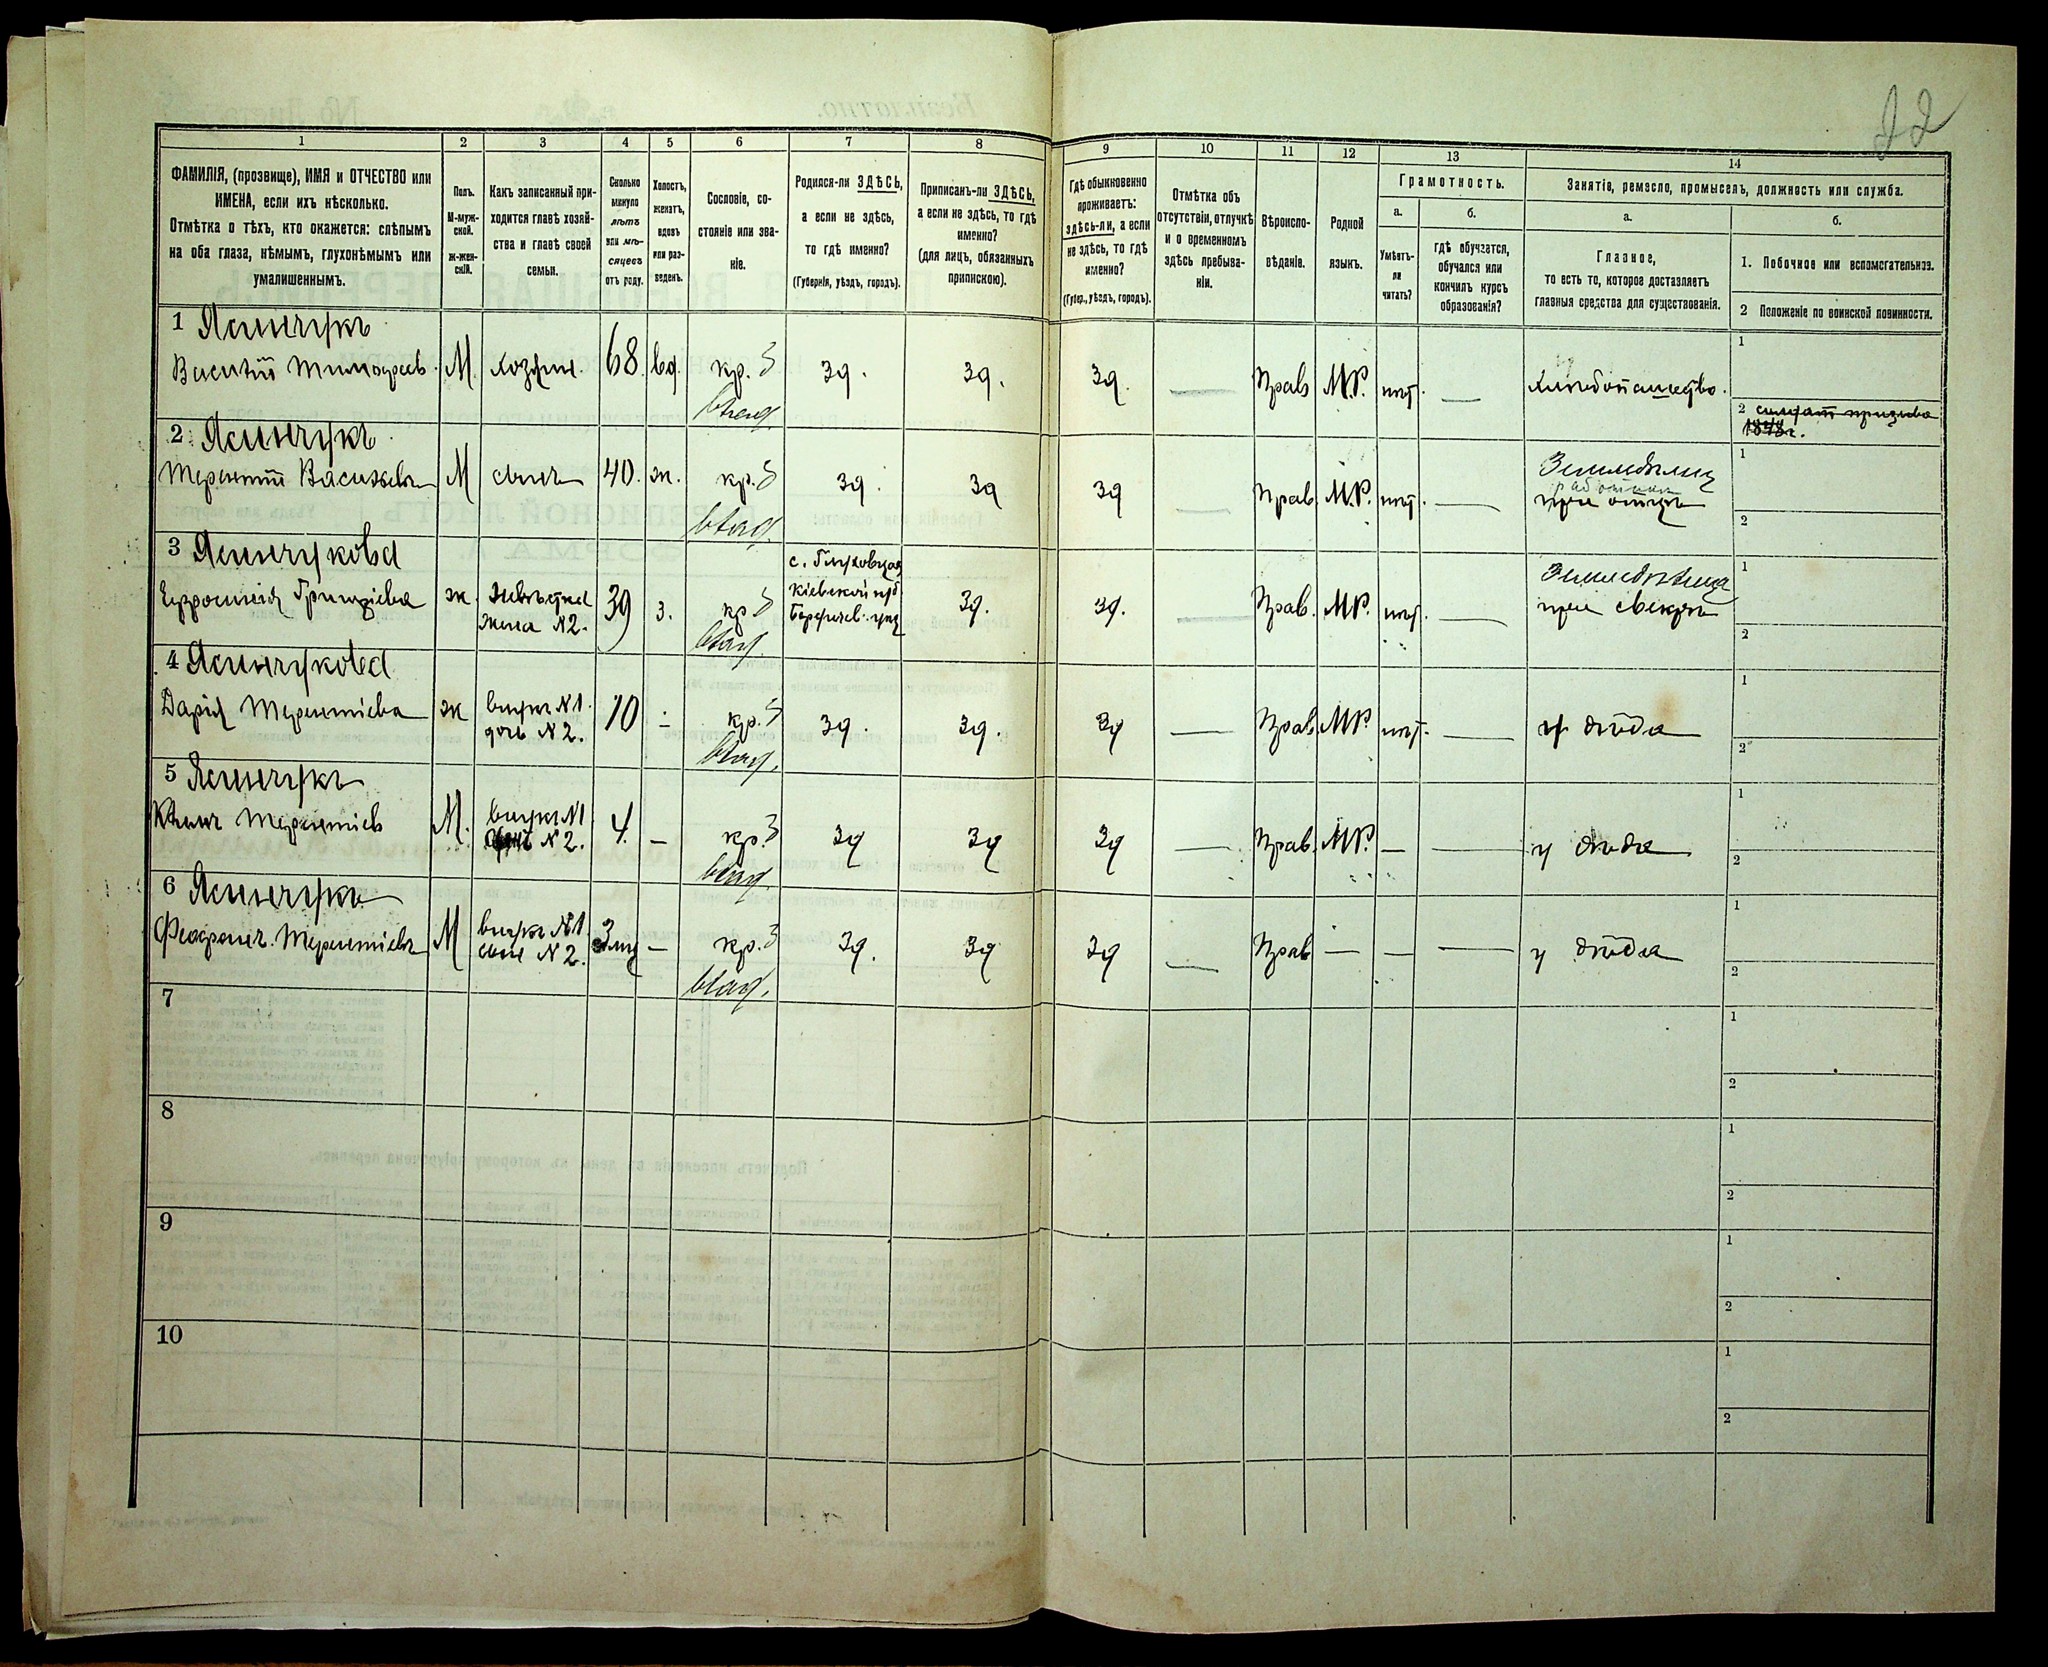 22
1 2 3 4 5 6 7 8 9 10 11 12 13 14
ФАМИЛІЯ, (прозвище), ИМЯ и ОТЧЕСТВО или
ИМЕНА, если ихъ нѣсколько.
Отмѣтка о тѣхъ, кто окажется: слѣпымъ
на оба глаза, нѣмымъ, глухонѣмымъ или
умалишеннымъ.
Полъ.
М-муж-
ской.
Ж-жен-
скій.
Какъ записанный при-
ходится главѣ хозяй-
ства и главѣ своей
семьи.
Сколько
минуло
лѣтъ
или мѣ-
сяцевъ
отъ роду.
Холостъ,
женатъ,
вдовъ
или раз-
веденъ.
Сословіе, со-
стояніе или зва-
ніе.
Родился-ли ЗДѢСЬ,
а если не здѣсь,
то гдѣ именно?
(Губернія, уѣздъ, городъ).
Приписанъ-ли ЗДѢСЬ,
а если не здѣсь, то гдѣ
именно?
(для лицъ, обязанныхъ
припискою).
Гдѣ обыкновенно
проживаетъ:
здѣсь-ли, а если
не здѣсь, то гдѣ
именно?
(Губер., уѣздъ, городъ).
Отмѣтка объ
отсутствіи, отлучкѣ
и о временномъ
здѣсь пребыва-
ніи.
Вѣроиспо-
вѣданіе.
Родной
языкъ.
Грамотность.
а.
Умѣетъ-
ли
читать?
б.
гдѣ обучается,
обучался или
кончилъ курсъ
образованія?
Занятіе, ремесло, промыселъ, должность или служба.
а.
Главное,
то есть то, которое доставляетъ
главныя средства для существованія.
б.
1. Побочное или вспомогательное.
2 Положеніе по воинской повинности.
1 Ясинчукъ
Василій Тимофеев. М. хозяин. 68 вд. кр. 3 зд. зд. зд. — Прав М.Р. нѣт. — Хлебопашество.
влад.
1
2
2 Ясинчукъ
Терентій Васильевъ М сынъ 40. ж. кр. 3 зд. зд зд — Прав. М.Р. нѣт. — Земледѣлец
работник
при отцѣ
влад.
1
2
3 Ясинчукова
Ефросинія Григоріева ж. невѣстка
жена №2. 39 з. кр 3 с. Глуховцах
Кіевской губ
Бердичев. уѣз зд. зд. — Прав. МР. нѣт. — Земледѣлица
при свекрѣ
влад.
1
2
4 Ясинчукова
Дарія Терентіева ж внучк №1.
дочь №2. 10 — кр. 3 зд. зд. зд — Прав МР нѣт. — у дѣда
влад.
1
2
5 Ясинчукъ
Терентіев М. внукъ №1
№2. 4. — кр. 3 зд зд зд — Прав. МР. — — у дѣда
влад.
1
2
6 Ясинчукъ
Терентіевъ М внукъ №1.
сынъ №2. 3 мц — кр. 3 зд. зд зд — Прав — — — у дѣда
влад.
1
2
7
1
2
8
1
2
9
1
2
10
1
2